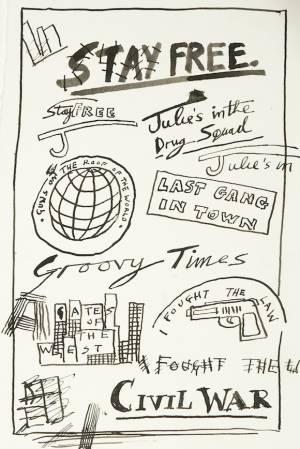 STAY FREE.
Stay FREE
J
Julie's in the
Drug Squad
Julie's in
GUNS ON THE ROOF OF THE WORLD
LAST GANG
IN TOWN
Groovy Times
GATES
OF
THE
WEST
I FOUGHT THE LAW
I FOUGHT THE
CIVIL WAR